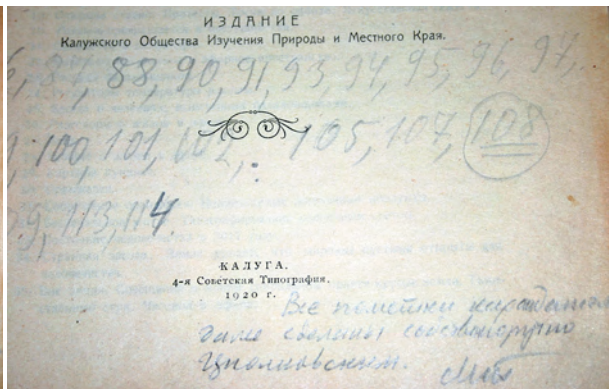 ИЗДАНИЕ
Калужского Общества Изучения Природы и Местного Края.
87, 88, 90, 91, 93, 94, 95, 96, 97,
100, 101, 102, 105, 107, 108
113, 114.
КАЛУГА.
4-я Советская Типография.
1920 г.
Все пометки карандашом
сделаны собственноручно
Циолковским.